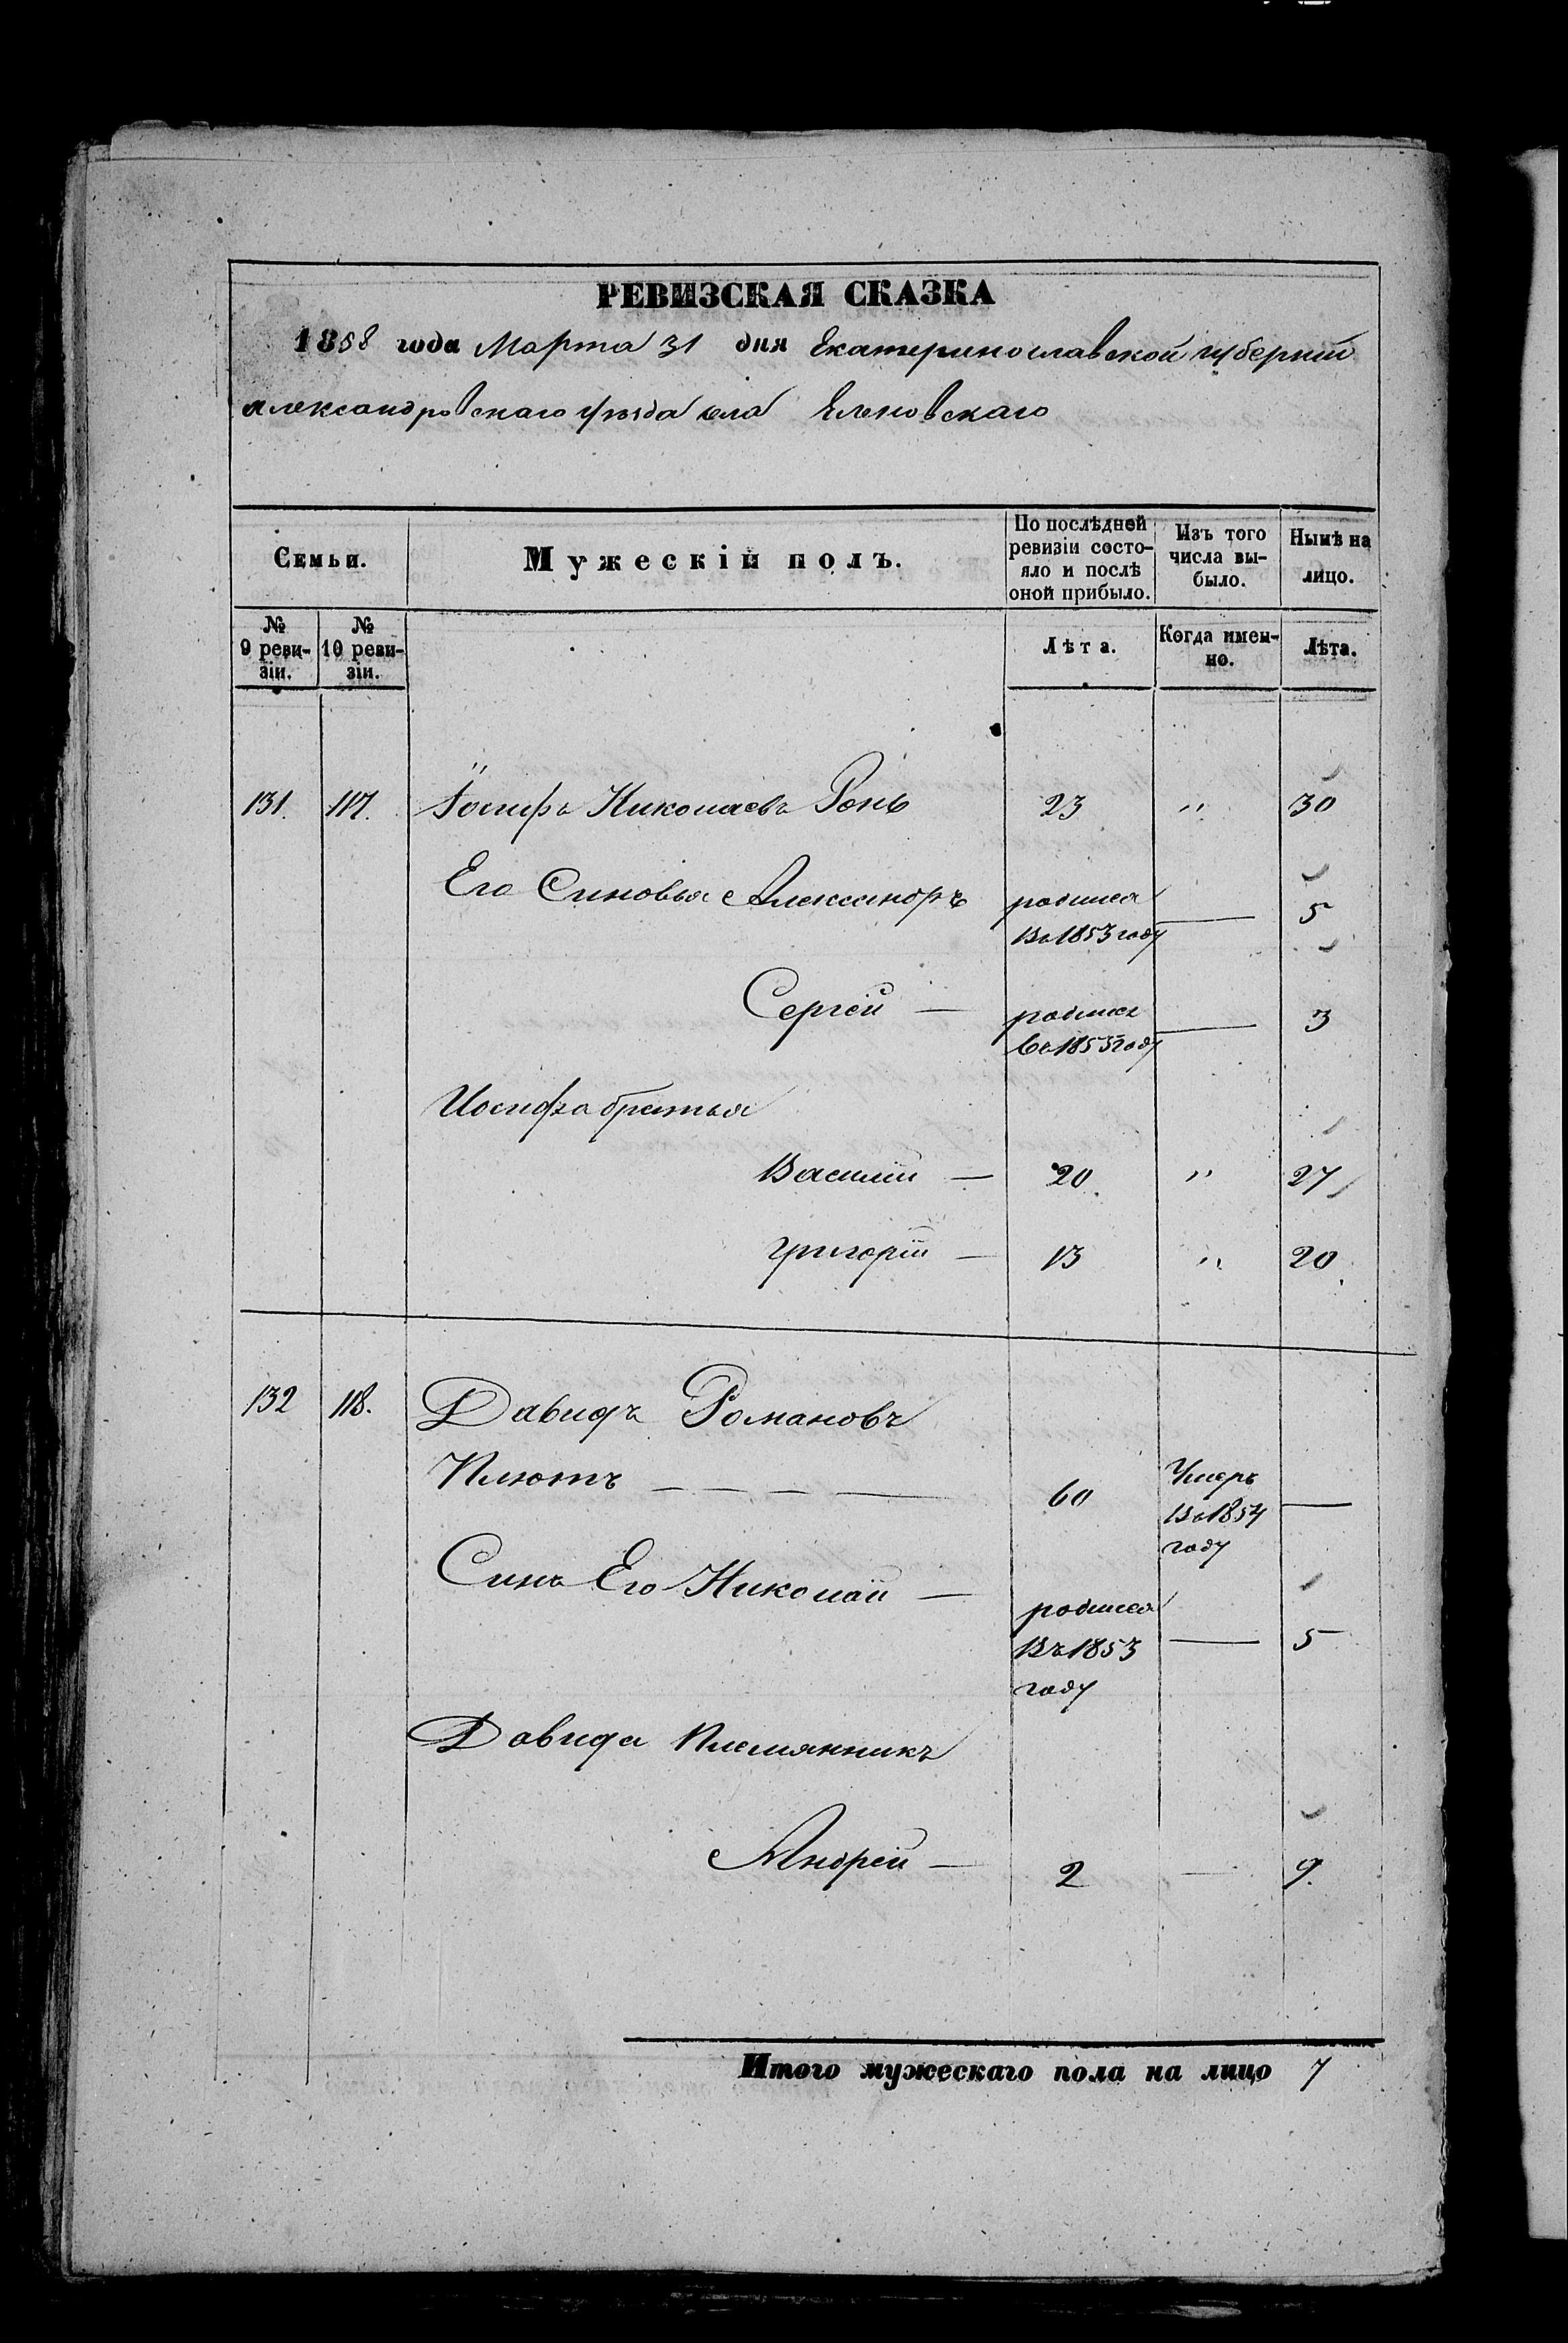 РЕВИЗСКАЯ СКАЗКА
1858 года Марта 31 дня Екатеринославской губерніи
Александровскаго уѣзда села Еленовскаго
Семьи.
Мужескій полъ.
По послѣдней
ревизіи состо-
яло и послѣ
оной прибыло.
Изъ того
числа вы-
было.
Нынѣ на
лицо.
№
9 реви-
зіи.
№
10 реви-
зіи.
Лѣта.
Когда имен-
но.
Лѣта.
131. 117. Іосифъ Николаевъ Рень 23 " 30
Его Синовья Александръ родился — 5
Въ 1853 году
Сергей — родился — 3
въ 1855 году
Иосифа братья
Василій — 20 " 27
Григорій — 13 " 20
132 118. Давидъ Романовъ
Плютъ — — — — 60 Умеръ —
Въ 1854
году
Синъ Его Николай — родился
Въ 1853 — 5
году
Давида Племянникъ
Андрей — 2 — 9.
Итого мужескаго пола на лицо 7